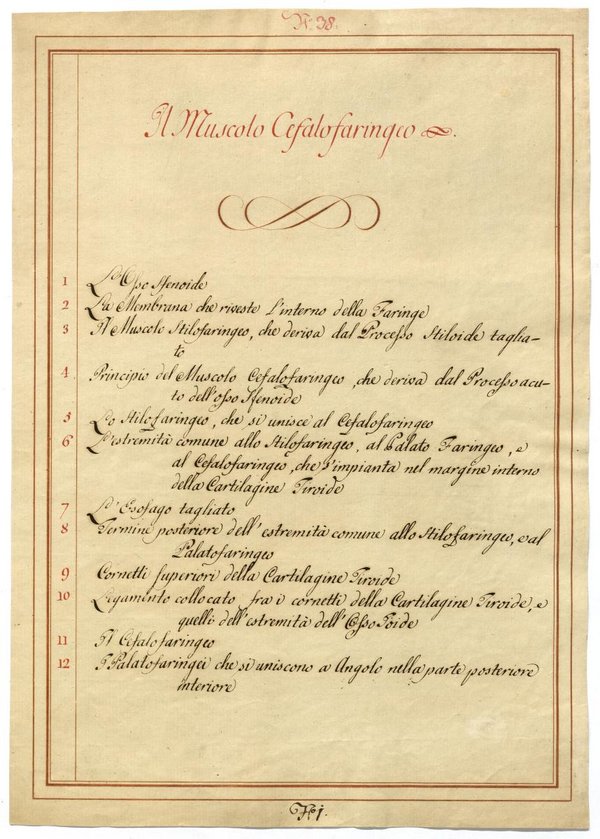 N. 38.
Il Muscolo Cefalofaringeo
1 L'Osso Sfenoide
2 La Membrana che riveste l'interno della Faringe
3 Il Muscolo Stilofaringeo, che deriva dal Processo Stiloide taglia-
to
4 Principio del Muscolo Cefalofaringeo, che deriva dal Processo acu-
to dell'osso Sfenoide
5 Lo Stilofaringeo, che si unisce al Cefalofaringeo
6 L'estremità comune allo Stilofaringeo, al Palato Faringeo, e
al Cefalofaringeo, che s'impianta nel margine interno
della Cartilagine Tiroide
7 L'Esofago tagliato
8 Termine posteriore dell'estremità comune allo Stilofaringeo, e al
Palatofaringeo
9 Cornetti superiori della Cartilagine Tiroide
10 Legamento collocato fra i cornetti della Cartilagine Tiroide, e
quelli dell'estremità dell'Osso Joide
11 Il Cefalofaringeo
12 I Palatofaringei che si uniscono a Angolo nella parte posteriore
interiore